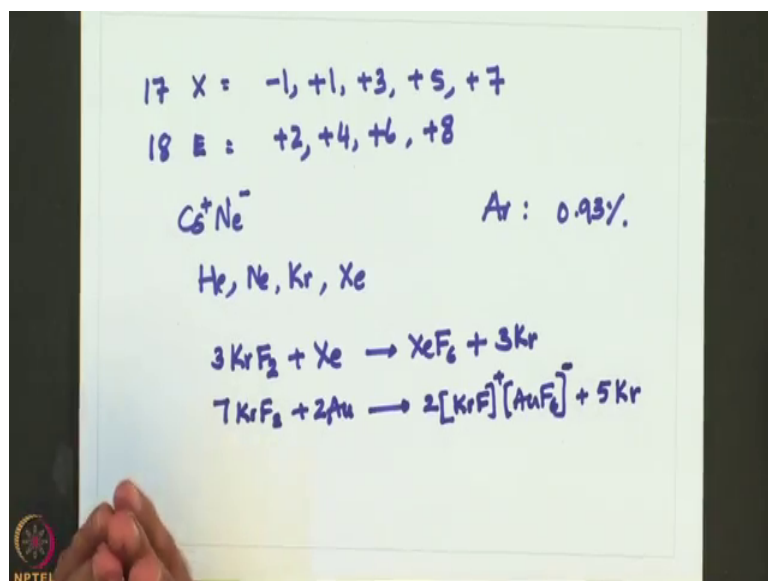 17 X = -1, +1, +3, +5, +7
18 E : +2, +4, +6, +8
Cs⁺Ne⁻ Ar : 0.93%.
He, Ne, Kr, Xe
3KrF₂ + Xe → XeF₆ + 3Kr
7KrF₂ + 2Au → 2[KrF]⁺[AuF₆]⁻ + 5Kr
NPTEL